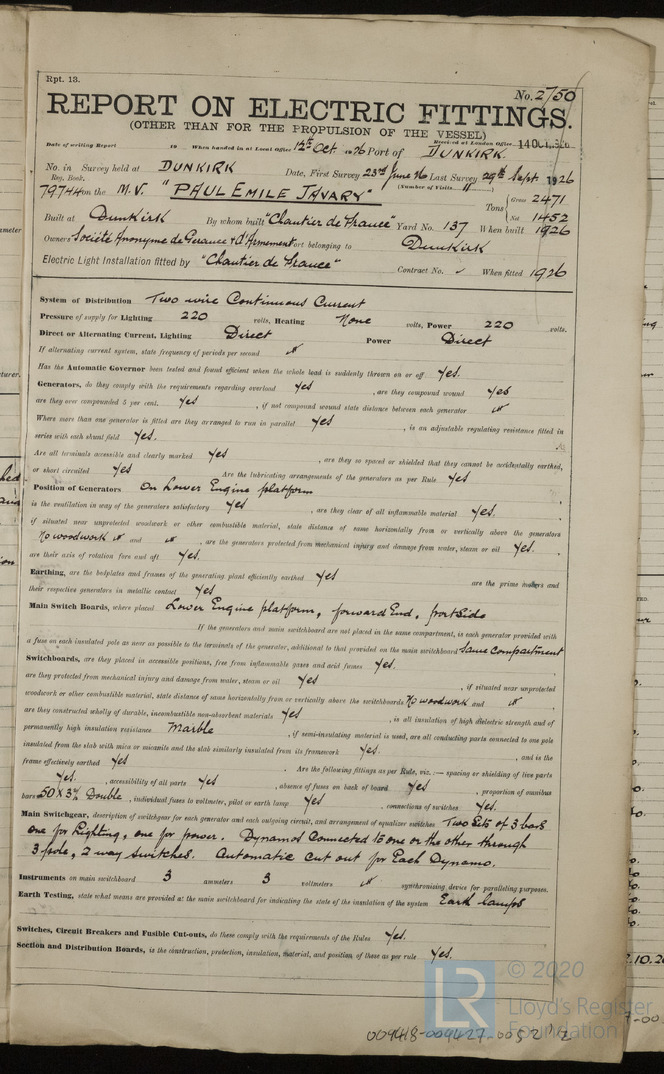 Rpt. 13.
No. 2750
REPORT ON ELECTRIC FITTINGS.
(OTHER THAN FOR THE PROPULSION OF THE VESSEL)
Date of writing Report 19 When handed in at Local Office 12th Oct. 1926 Port of DUNKIRK. Received at London Office 14 OCT. 1926
No. in Survey held at DUNKIRK Date, First Survey 23rd June 26 Last Survey 29th Sept. 1926
Reg. Book. (Number of Visits 11)
79744 on the M.V. "PAUL EMILE JAVARY" Tons { Gross 2471
Net 1452
Built at Dunkirk By whom built "Chantier de France" Yard No. 137 When built 1926
Owners Société Anonyme de Gerance & d'Armement Port belonging to Dunkirk
Electric Light Installation fitted by "Chantier de France" Contract No. When fitted 1926
System of Distribution Two wire Continuous Current
Pressure of supply for Lighting 220 volts, Heating None volts, Power 220 volts.
Direct or Alternating Current, Lighting Direct Power Direct
If alternating current system, state frequency of periods per second
Has the Automatic Governor been tested and found efficient when the whole load is suddenly thrown on or off Yes.
Generators, do they comply with the requirements regarding overload Yes , are they compound wound Yes
are they over compounded 5 per cent. Yes , if not compound wound state distance between each generator
Where more than one generator is fitted are they arranged to run in parallel Yes , is an adjustable regulating resistance fitted in
series with each shunt field Yes.
Are all terminals accessible and clearly marked Yes , are they so spaced or shielded that they cannot be accidentally earthed,
or short circuited Yes Are the lubricating arrangements of the generators as per Rule Yes
Position of Generators On Lower Engine platform
is the ventilation in way of the generators satisfactory Yes , are they clear of all inflammable material Yes.
if situated near unprotected woodwork or other combustible material, state distance of same horizontally from or vertically above the generators
No woodwork and , are the generators protected from mechanical injury and damage from water, steam or oil Yes.
are their axis of rotation fore and aft Yes.
Earthing, are the bedplates and frames of the generating plant efficiently earthed Yes are the prime movers and
their respective generators in metallic contact Yes
Main Switch Boards, where placed Lower Engine platform, forward End, port side
If the generators and main switchboard are not placed in the same compartment, is each generator provided with
a fuse on each insulated pole as near as possible to the terminals of the generator, additional to that provided on the main switchboard Same Compartment
Switchboards, are they placed in accessible positions, free from inflammable gases and acid fumes Yes.
are they protected from mechanical injury and damage from water, steam or oil Yes , if situated near unprotected
woodwork or other combustible material, state distance of same horizontally from or vertically above the switchboards No woodwork and
are they constructed wholly of durable, incombustible non-absorbent materials Yes , is all insulation of high dielectric strength and of
permanently high insulation resistance Marble , if semi-insulating material is used, are all conducting parts connected to one pole
insulated from the slab with mica or micanite and the slab similarly insulated from its framework Yes. , and is the
frame effectively earthed Yes Are the following fittings as per Rule, viz. :— spacing or shielding of live parts
Yes. , accessibility of all parts Yes , absence of fuses on back of board Yes , proportion of omnibus
bars 50 x 3 m/m Double , individual fuses to voltmeter, pilot or earth lamp Yes , connections of switches Yes.
Main Switchgear, description of switchgear for each generator and each outgoing circuit, and arrangement of equalizer switches Two Sets of 3 bars
one for Lighting, one for power. Dynamos Connected to one or the other through
3 pole, 2 way switches. Automatic cut out for Each Dynamo.
Instruments on main switchboard 3 ammeters 3 voltmeters synchronising device for paralleling purposes.
Earth Testing, state what means are provided at the main switchboard for indicating the state of the insulation of the system Earth lamps
Switches, Circuit Breakers and Fusible Cut-outs, do these comply with the requirements of the Rules Yes.
Section and Distribution Boards, is the construction, protection, insulation, material, and position of these as per rule Yes.
LR
© 2020
Lloyd's Register
Foundation
009418-009427-0052 1/2